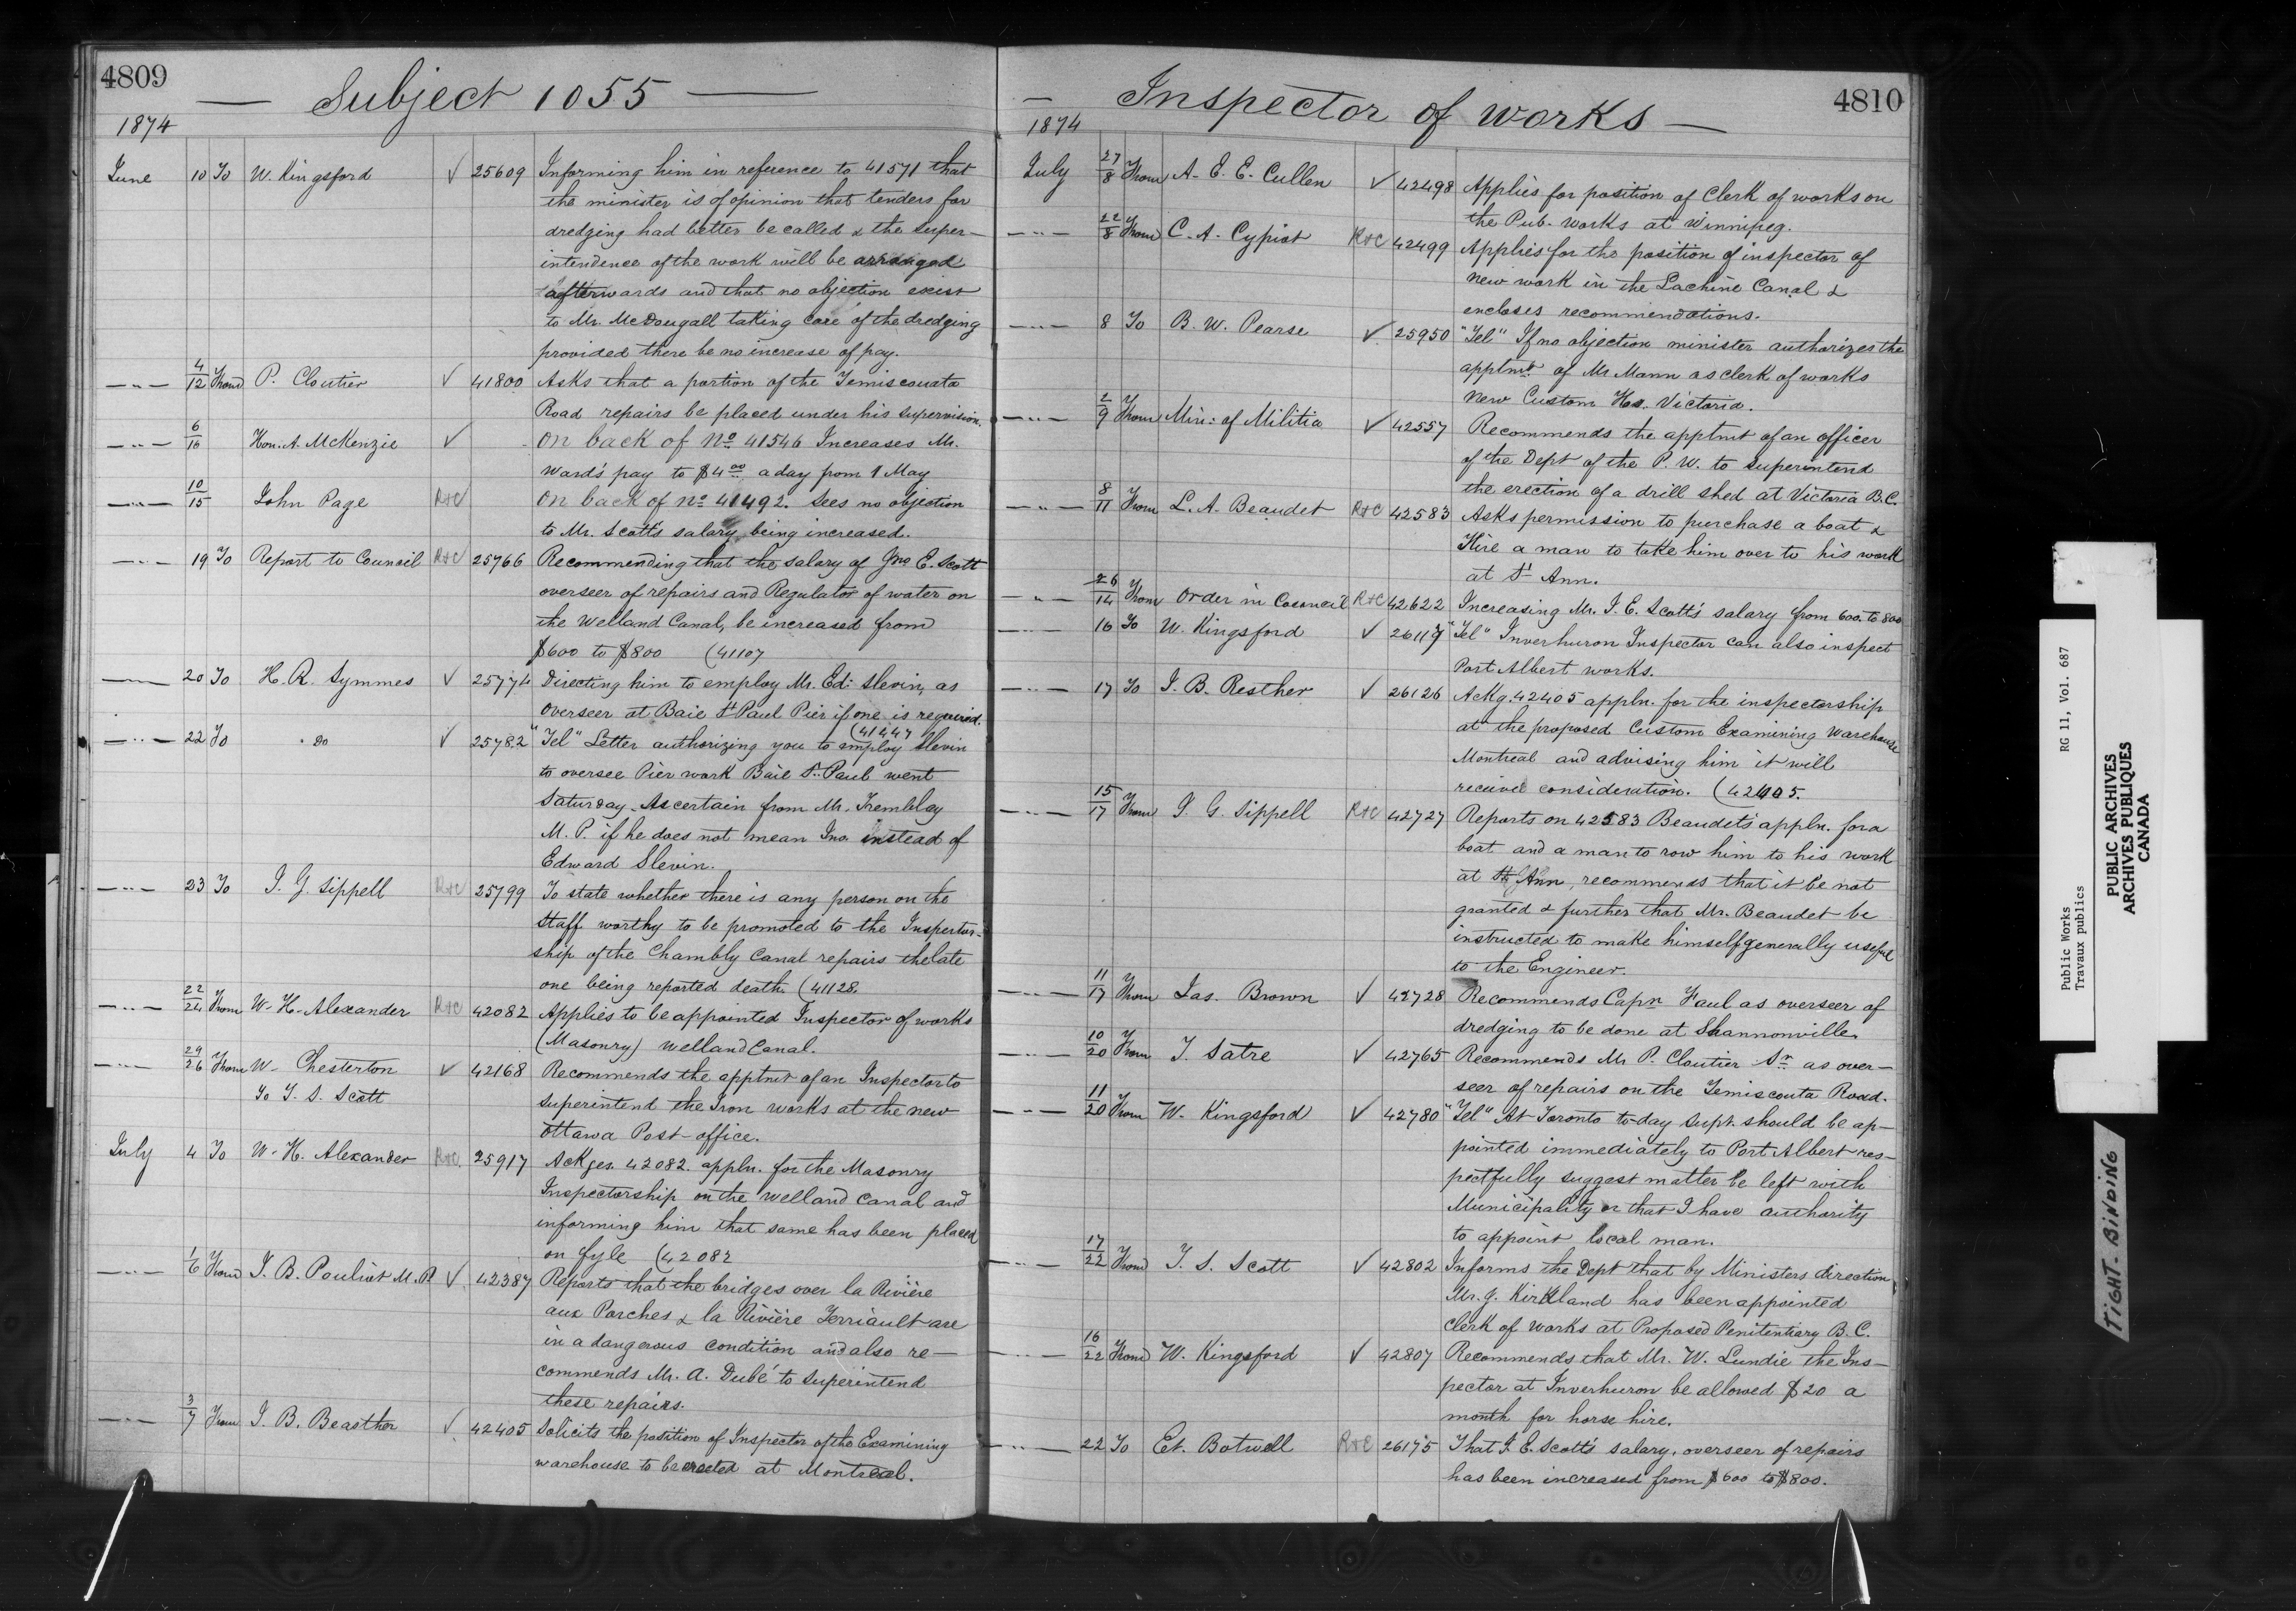 4809
Subject 1055
1874
June 10 To W. Kingsford ✓ 25609 Informing him in reference to 41571 that
the minister is of opinion that tenders for
dredging had better be called & the super-
intendence of the work will be arranged
afterwards and that no objection exist
to Mr. McDougall taking care of the dredging
provided there be no increase of pay.
—"— 4/12 From P. Cloutier ✓ 41800 Asks that a portion of the Temiscouata
Road repairs be placed under his supervision.
—"— 6/16 Hon. A. McKenzie ✓ On back of No 41546 Increases Mr.
Ward's pay to $4.00 a day from 1 May
—"— 10/15 John Page R&C On back of No 41492. Sees no objection
to Mr. Scott's salary being increased.
—"— 19 To Report to Council R&C 25766 Recommending that the salary of Jno E. Scott
overseer of repairs and Regulator of water on
the Welland Canal, be increased from
$600 to $800 (41107
—"— 20 To H. R. Symmes ✓ 25774 Directing him to employ Mr. Ed: Slevin, as
overseer at Baie St Paul Pier if one is required.
(41447
—"— 22 To " Do ✓ 25782 "Tel" Letter authorizing you to employ Slevin
to oversee Pier work Baie St. Paul went
Saturday. Ascertain from Mr. Tremblay
M. P. if he does not mean Jno. instead of
Edward Slevin.
—"— 23 To J. G. Sippell R&C 25799 To state whether there is any person on the
Staff worthy to be promoted to the Inspector-
ship of the Chambly Canal repairs the late
one being reported death (41128.
—"— 22/24 From W. H. Alexander R&C 42082 Applies to be appointed Inspector of works
(Masonry) Welland Canal.
—"— 29/26 From W. Chesterton ✓ 42168 Recommends the apptmt of an Inspector to
To T. S. Scott superintend the Iron works at the new
Ottawa Post-office.
July 4 To W. H. Alexander R&C. 25917 Ackges. 42082. appln. for the Masonry
Inspectorship on the Welland Canal and
informing him that same has been placed
on fyle (42082
—"— 1/6 From J. B. Pouliot M. P. ✓ 42387 Reports that the bridges over la Rivière
aux Porches & la Rivière Terriault are
in a dangerous condition and also re-
commends Mr. A. Dubé to superintend
these repairs.
—"— 3/7 From J. B. Beasther ✓ 42405 Solicits the position of Inspector of the Examining
warehouse to be erected at Montreal.
Inspector of works
4810
1874
July 27/8 From A. E. E. Cullen ✓ 42498 Applies for position of Clerk of works on
the Pub. works at Winnipeg.
—"— 22/8 From C. A. Cypiot R&C 42499 Applies for the position of inspector of
new work in the Lachine Canal &
encloses recommendations.
—"— 8 To B. W. Pearse ✓ 25950 "Tel" If no objection minister authorizes the
apptmt of Mr Mann as clerk of works
New Custom Hse. Victoria.
—"— 2/9 From Min: of Militia ✓ 42557 Recommends the apptmt of an officer
of the Dept of the P. W. to superintend
the erection of a drill shed at Victoria B.C.
—"— 8/11 From L. A. Beaudet R&C 42583 Asks permission to purchase a boat &
Hire a man to take him over to his work
at St Ann.
—"— 26/14 From Order in Council R&C 42622 Increasing Mr. J. E. Scott's salary from 600. to 800
—"— 16 To W. Kingsford ✓ 26117 "Tel" Inverhuron Inspector can also inspect
Port Albert works.
—"— 17 To J. B. Resther ✓ 26126 Ackg. 42405 appln. for the inspectorship
at the proposed Custom Examining Warehouse
Montreal and advising him it will
receive consideration. (42405.
—"— 15/17 From J. G. Sippell R&C 42727 Reports on 42583 Beaudet's appln. for a
boat and a man to row him to his work
at St Ann, recommends that it be not
granted & further that Mr. Beaudet be
instructed to make himself generally useful
to the Engineer.
—"— 11/17 From Jas. Brown ✓ 42728 Recommends Capn Faul as overseer of
dredging to be done at Shannonville.
—"— 10/20 From T. Satre ✓ 42765 Recommends Mr P. Cloutier Sr. as over-
seer of repairs on the Temiscouta Road.
—"— 11/20 From W. Kingsford ✓ 42780 "Tel" At Toronto to-day Supt. should be ap-
pointed immediately to Port Albert res-
pectfully suggest matter be left with
Municipality or that I have authority
to appoint local man.
—"— 17/22 From T. S. Scott ✓ 42802 Informs the Dept that by Ministers direction
Mr. J. Kirkland has been appointed
Clerk of Works at Proposed Penitentiary B. C.
—"— 16/22 From W. Kingsford ✓ 42807 Recommends that Mr. W. Lundie the Ins-
pector at Inverhuron be allowed $20 a
month for horse hire.
—"— 22 To Et. Botwell R&C 26175 That J. E. Scott's salary, overseer of repairs
has been increased from $600 to $800.
Public Works RG 11, Vol. 687
Travaux publics
PUBLIC ARCHIVES
ARCHIVES PUBLIQUES
CANADA
TIGHT. BINDING